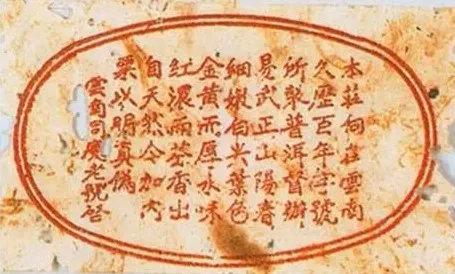 本莊向在雲南
久歷百年字號
所製普洱督辦
易武正山陽春
細嫩白尖葉色
金黃而厚水味
紅濃而芬香出
自天然今加內
票以明真偽
雲南同慶老號啓